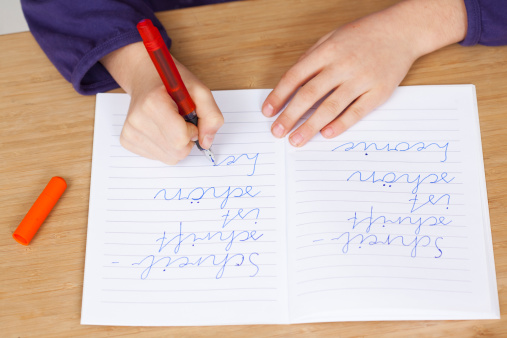 Schreib-
schrift
ist
schön
Schreib-
schrift
ist
schön
he